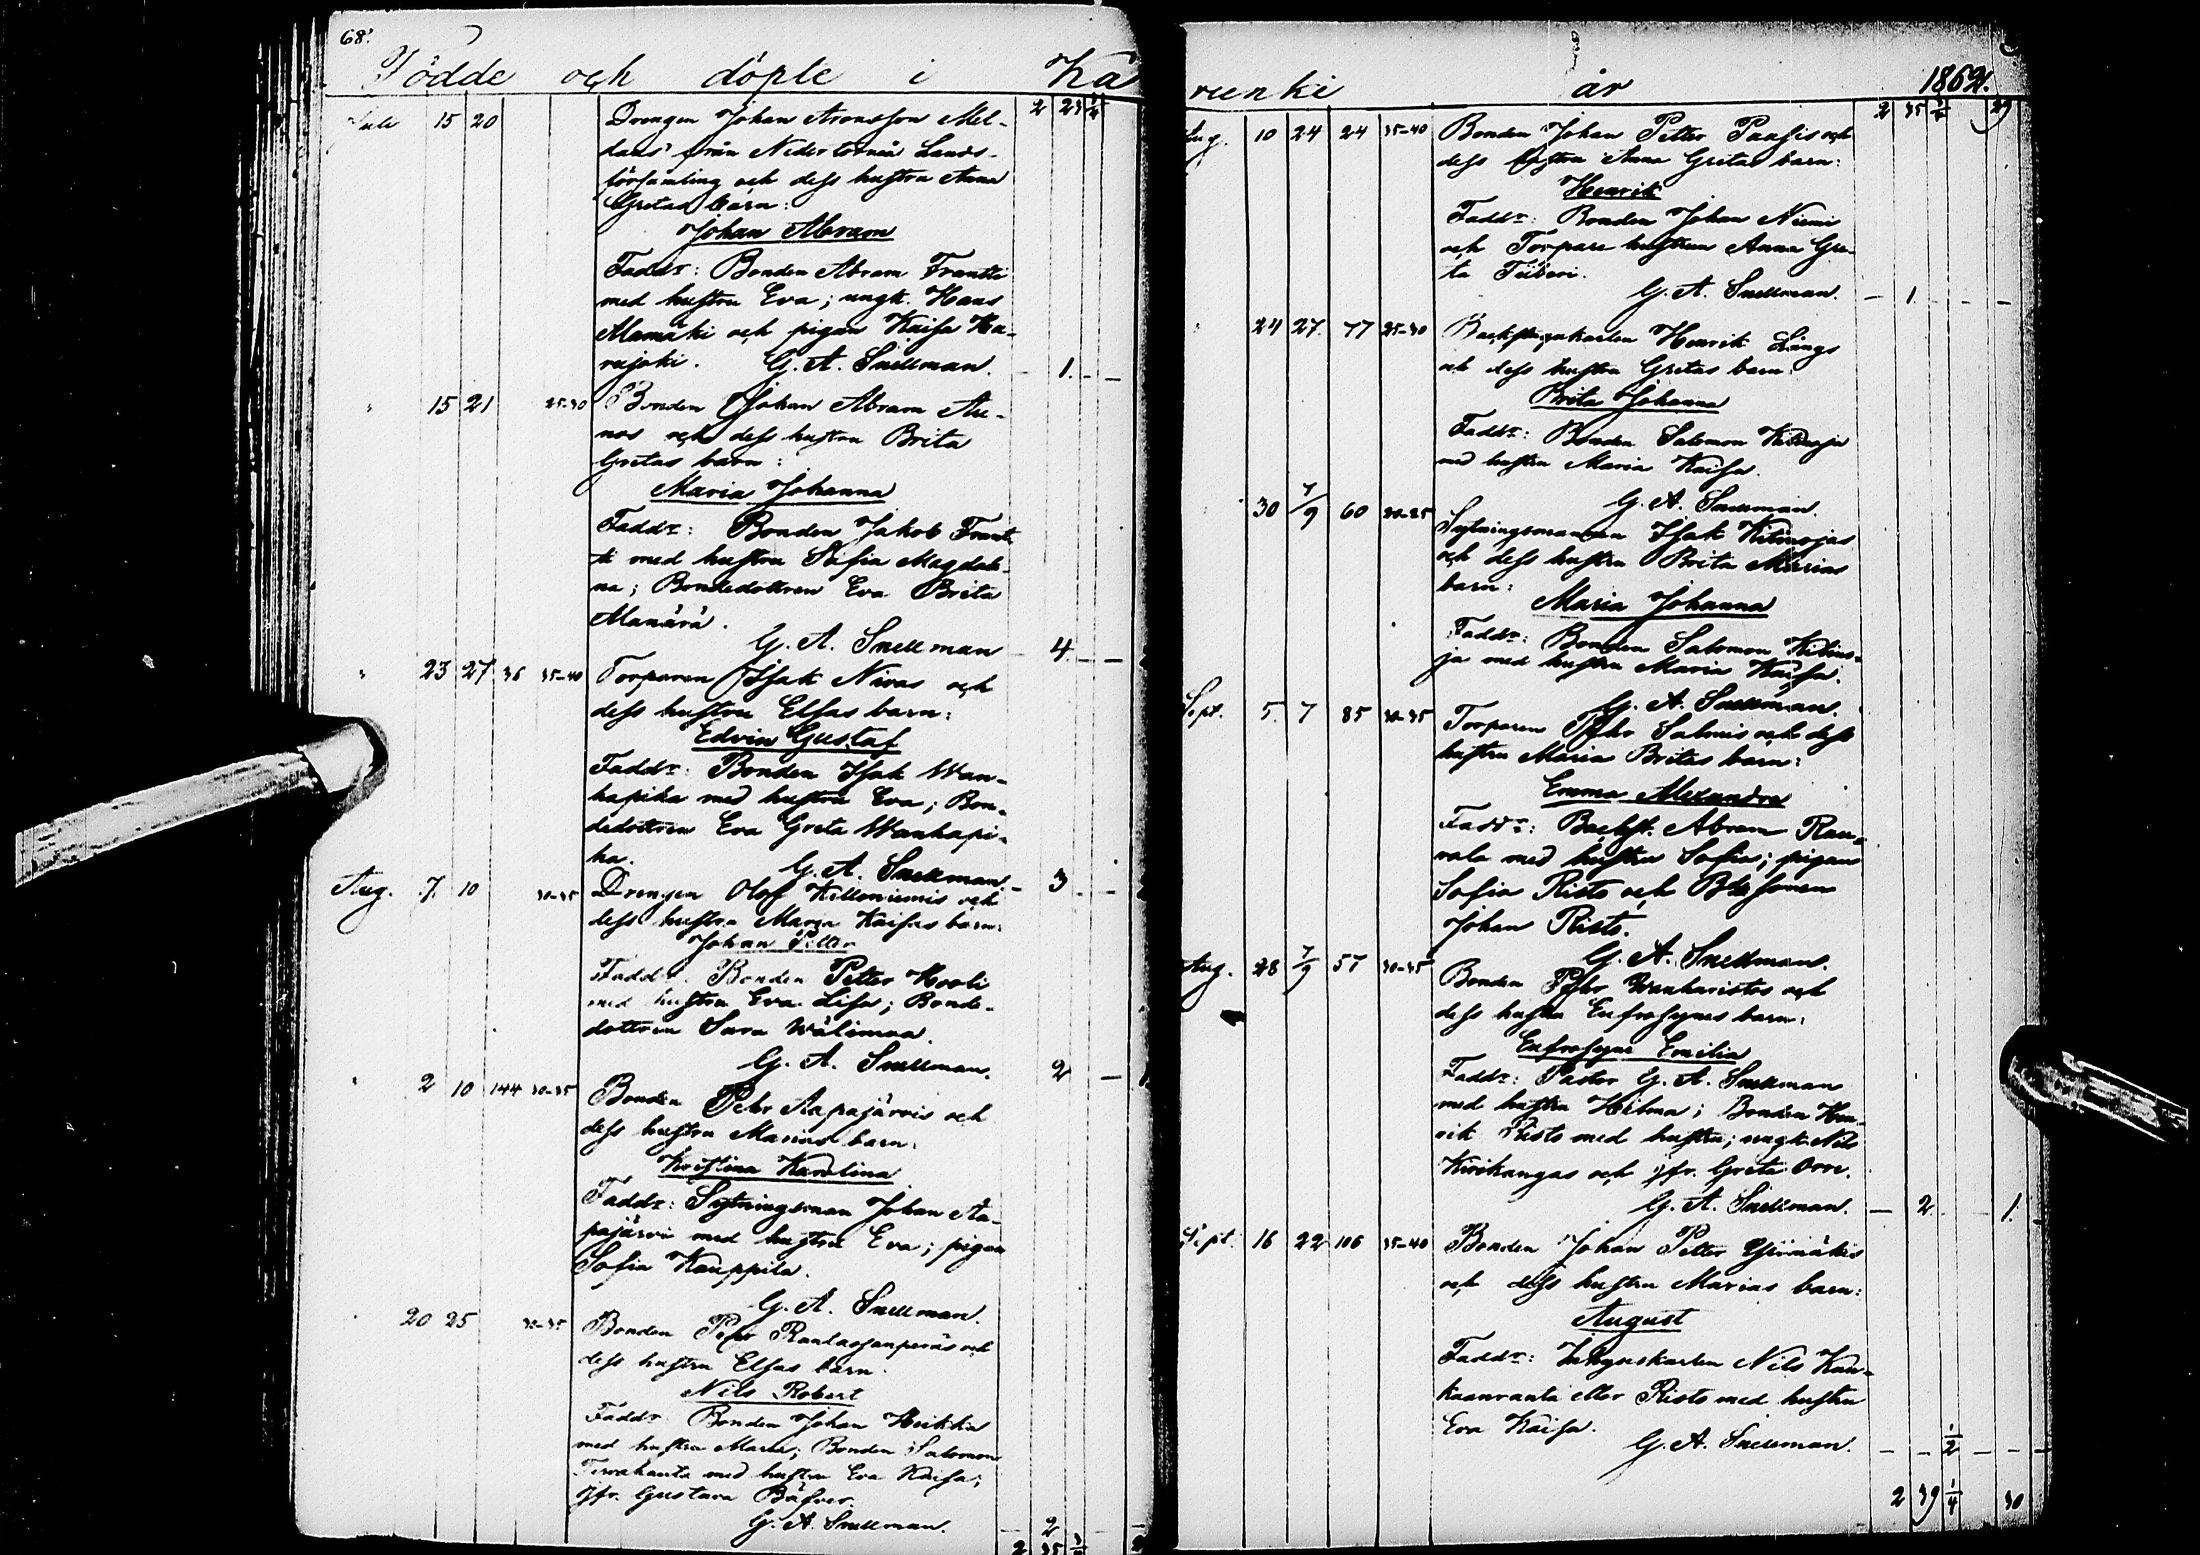 68.
Födde och döpte i Ka
Juli 15 20 Drengen Johan Aronsson Mel-
dahls från Nedertorneå Lands-
församling och dess hustru Anna
Gretas barn:
Johan Abram
Faddr: Bonden Abram Frantti
med hustru Eva; ungk. Hans
Alamäki och pigan Kaisa Ka-
rujoki. G. A. Snellman. - 1. - -
" 15 21 25-30 Bonden Johan Abram Au-
nos och dess hustru Brita
Gretas barn:
Maria Johanna
Faddr: Bonden Jakob Frant-
ti med hustru Sofia Magdale-
na; Bondedottren Eva Brita
Manärä.
G. A. Snellman - 4. - -
" 23 27 36 35-40 Torparen Isak Nivas och
dess hustru Elsas barn:
Edvin Gustaf
Faddr: Bonden Isak Wan-
hapiha med hustru Eva; Bon-
dedottren Eva Greta Wanhapi-
ha.
G. A. Snellman. - 3 - -
Aug. 7. 10 30-35 Drengen Olof Killoniemis och
dess hustru Maria Kaisas barn:
Johan Petter
Faddr. Bonden Petter Kooli
med hustru Eva Lisa; Bonde-
dottren Sara Wälimaa.
G. A. Snellman. 2 - 1.
" 2 10 144 30-35 Bonden Pehr Aapajärvis och
dess hustru Marias barn:
Kristina Karolina
Faddr: Sytningsman Johan Aa-
pajärvi med hustru Eva; pigan
Sofia Kauppila.
G. A. Snellman.
" 20 25 30-35 Bonden Pehr Rantasganperäs och
dess hustru Elsas barn.
Nils Robert
Faddr. Bonden Johan Heikka
med hustru Maria; Bonden Salomon
Tervahauta med hustru Eva Kaisa;
jfr. Gustava Bäfver.
G. A. Snellman. - 2 - -
runki år 1862.
Aug. 10 24 24 35-40 Bonden Johan Petter Paasis och
dess hustru Anna Gretas barn:
Henrik
Faddr: Bonden Johan Niemi
och Torpare hustrun Anna Gre-
ta Fiiberi.
G. A. Snellman. - 1. - - -
24 27. 77 25-30 Backstugukarlen Henrik Längs
och dess hustru Gretas barn:
Brita Johanna
Faddr: Bonden Salomon Kitinoja
med hustru Maria Kaisa.
G. A. Snellman.
30 7/9 60 20-25 Sytningsmannen Isak Kitinojas
och dess hustru Brita Marias
barn:
Maria Johanna
Faddr: Bonden Salomon Kitino-
ja med hustru Maria Kaisa.
G. A. Snellman.
Sept. 5. 7 85 30-35 Torparen Pehr Salmis och dess
hustru Maria Britas barn:
Emma Alexandra
Faddr: Backst. Abram Rau-
vala med hustru Sofia; pigan
Sofia Risto och
Johan Risto.
G. A. Snellman.
Aug. 28 7/9 57 30-35 Bonden Pehr Wanharistos och
dess hustru Eufrosynes barn:
Eufrosyne Emilia
Faddr: Pastor G. A. Snellman
med hustru Hilma; Bonden Hen-
rik Risto med hustru; ungk. Nils
Kirikangas och jfr. Greta Orre.
G. A. Snellman. - 2. 1.
Sept. 16 22 106 35-40 Bonden Johan Petter Yrimäkis
och dess hustru Marias barn:
August
Faddr: Inhyseskarlen Nils Kan-
kaanranta eller Risto med hustru
Eva Kaisa.
G. A. Snellman. - - 1/2 - - -
2 39 1/4 30